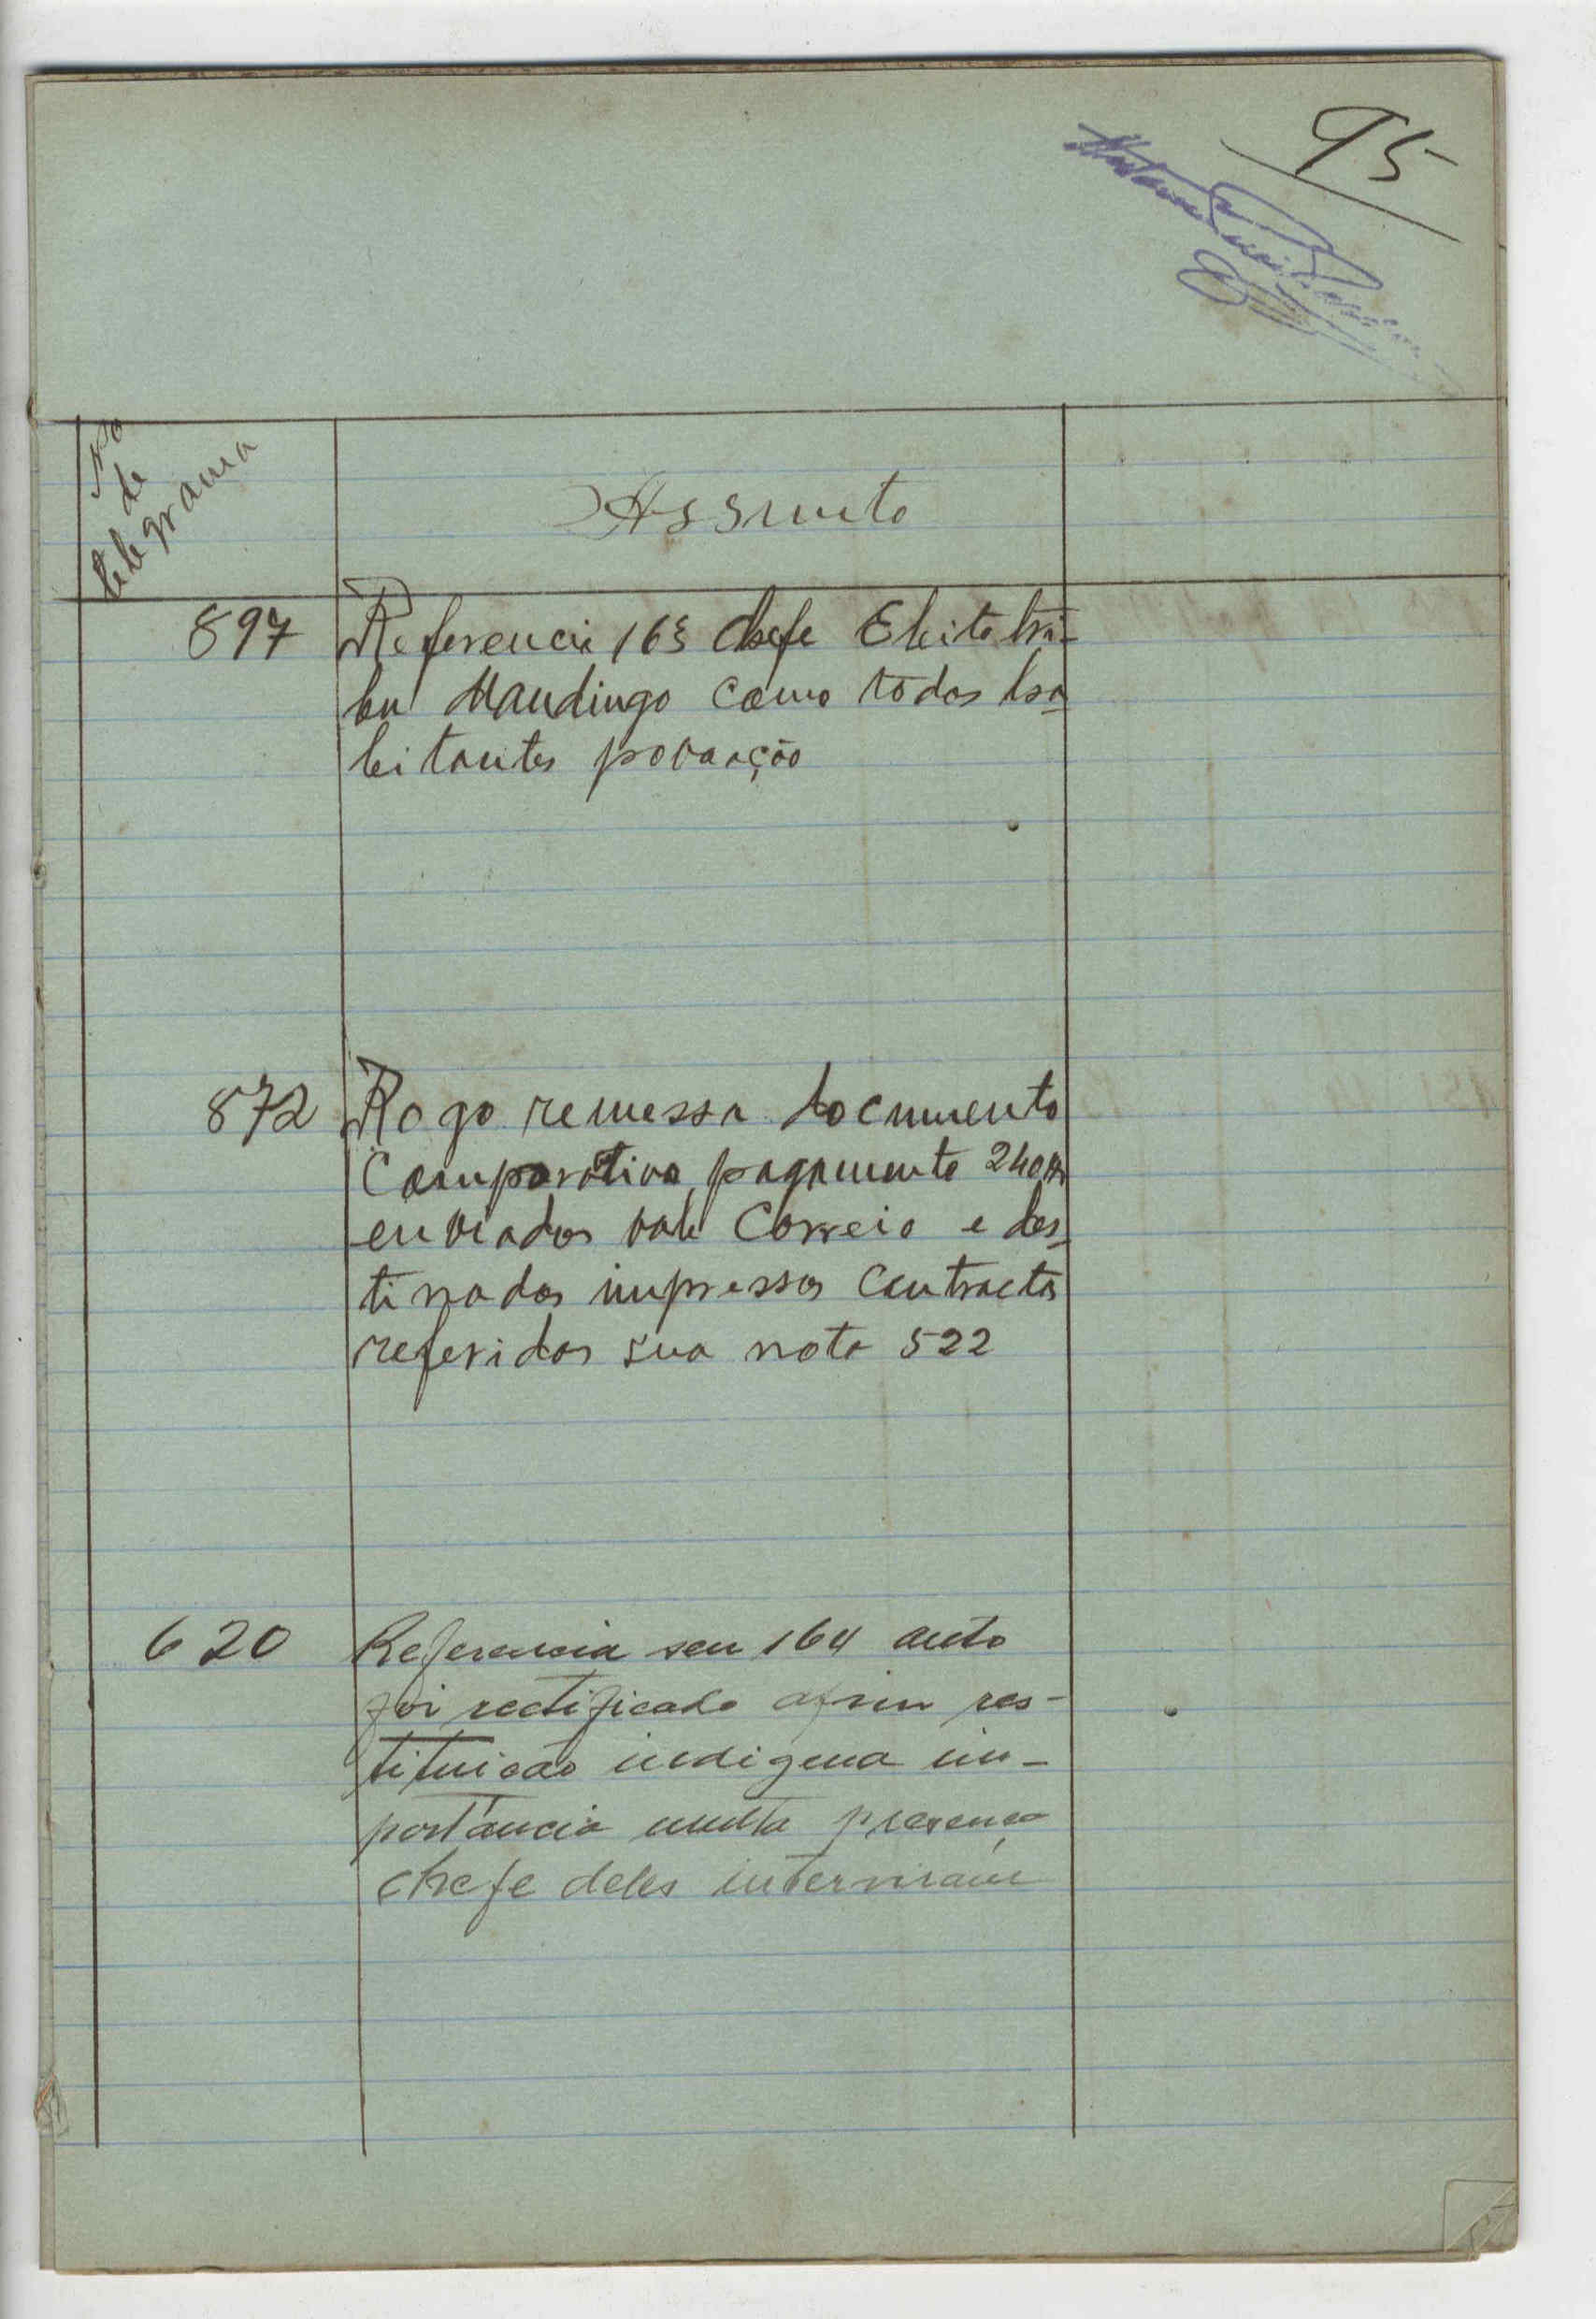 95
No
de
telegrama
Assunto
897 Referencia 163 chefe Eleito tri-
bu Mandingo como todos ha-
bitantes povoação
872 Rogo remessa documento
Comparativo pagamento 240$
enviados vale Correio e des-
tinados impressos Contractos
referidos sua nota 522
620 Referencia seu 164 auto
foi rectificado afim res-
tituição indigena im-
portância multa presença
chefe deles intervirám